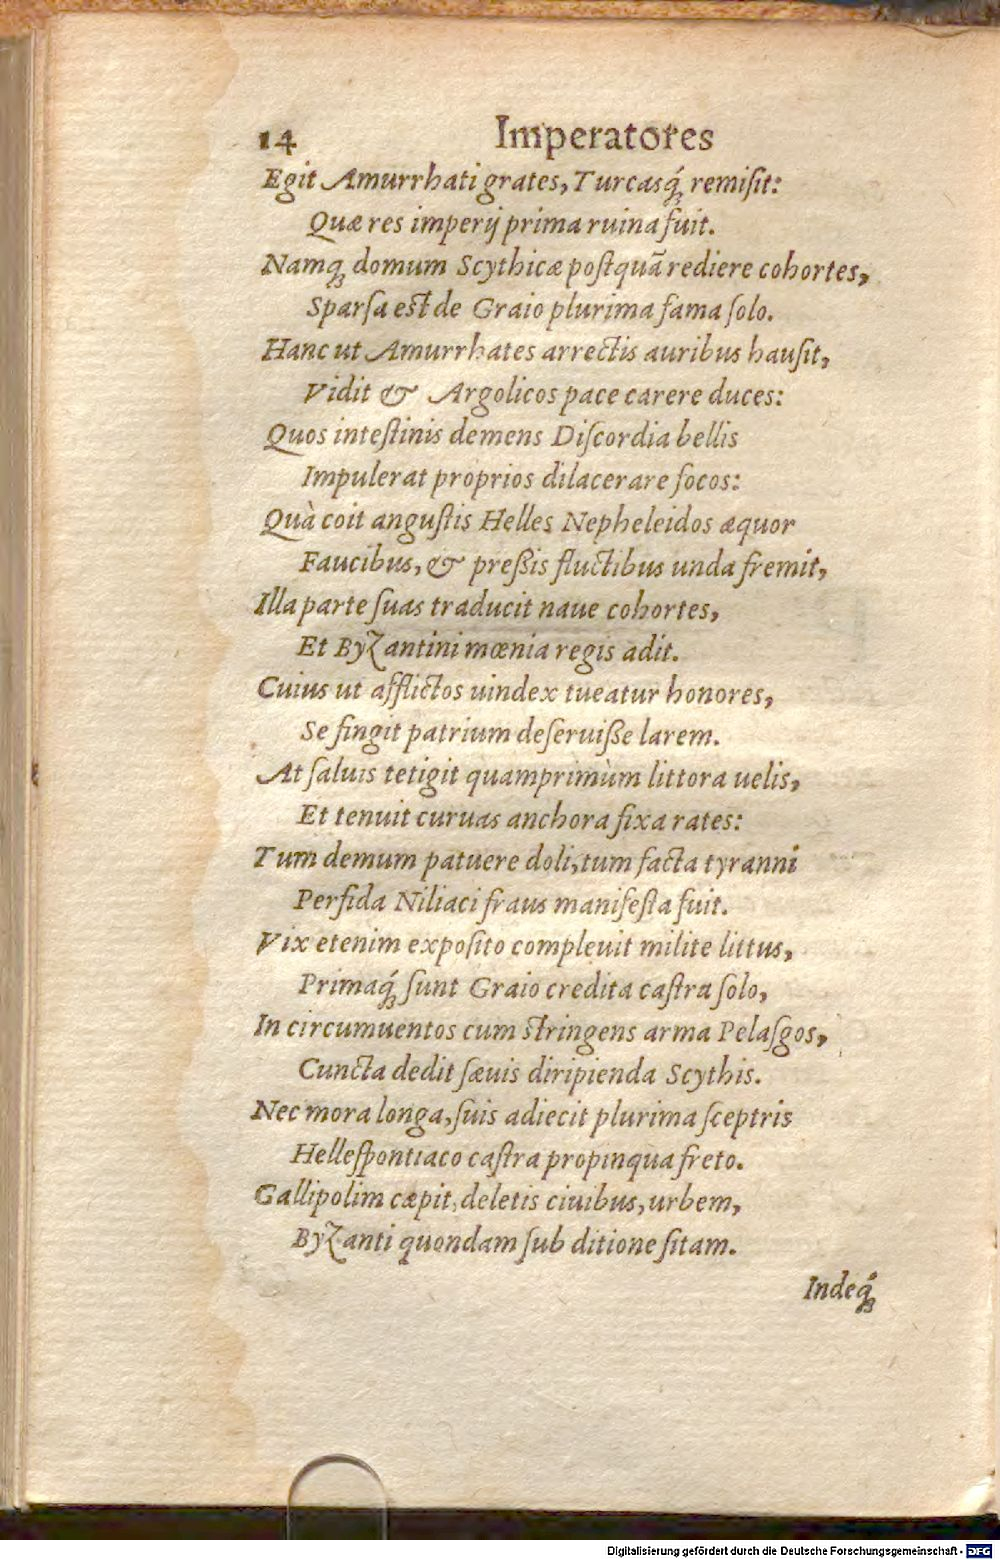 14 Imperatores
Egit Amurrhati grates, Turcasq́ꝫ remiſit:
Quæ res imperij prima ruina fuit.
Namqꝫ domum Scythicæ poſtquā rediere cohortes,
Sparſa est de Graio plurima fama ſolo.
Hanc ut Amurrhates arrectis auribus hauſit,
Vidit & Argolicos pace carere duces:
Quos inteſtinis demens Diſcordia bellis
Impulerat proprios dilacerare focos:
Quà coit anguſtis Helles Nepheleidos æquor
Faucibus, & preßis fluctibus unda fremit,
Illa parte ſuas traducit naue cohortes,
Et Byzantini mœnia regis adit.
Cuius ut afflictos uindex tueatur honores,
Se fingit patrium deſeruiſſe larem.
At ſaluis tetigit quamprimùm littora uelis,
Et tenuit curuas anchora fixa rates:
Tum demum patuere doli, tum facta tyranni
Perfida Niliaci fraus manifeſta fuit.
Vix etenim expoſito compleuit milite littus,
Primaq́ꝫ ſunt Graio credita caſtra ſolo,
In circumuentos cum stringens arma Pelaſgos,
Cuncta dedit ſæuis diripienda Scythis.
Nec mora longa, ſuis adiecit plurima ſceptris
Helleſpontiaco caſtra propinqua freto.
Gallipolim cæpit, deletis ciuibus, urbem,
Byzanti quondam ſub ditione ſitam.
Indeq́ꝫ
Digitalisierung gefördert durch die Deutsche Forschungsgemeinschaft - DFG